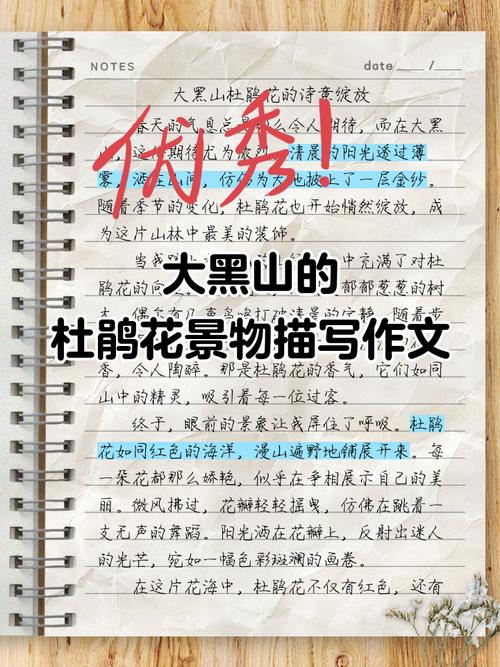 NOTES
date /
大黑山杜鹃花的诗意绽放
优秀!
春天的气息总是那么令人期待，而在大黑
山，这种期待尤为浓烈。清晨的阳光透过薄
雾，洒在山间，仿佛为大地披上了一层金纱。
随着季节的变化，杜鹃花也开始悄然绽放，成
为这片山林中最美的装饰。
大黑山的
中充满了对杜
鹃花的
郁郁葱葱的树
杜鹃花景物描写作文
香，令人陶醉。那是杜鹃花的香气，它们如同
山中的精灵，吸引着每一位过客。
终于，眼前的景象让我屏住了呼吸。杜鹃
花如同红色的海洋，漫山遍野地铺展开来。每
一朵花都那么娇艳，似乎在争相展示自己的美
丽。微风拂过，花瓣轻轻摇曳，仿佛在跳着一
支无声的舞蹈。阳光洒在花瓣上，反射出迷人
的光芒，宛如一幅色彩斑斓的画卷。
在这片花海中，杜鹃花不仅有红色，还有